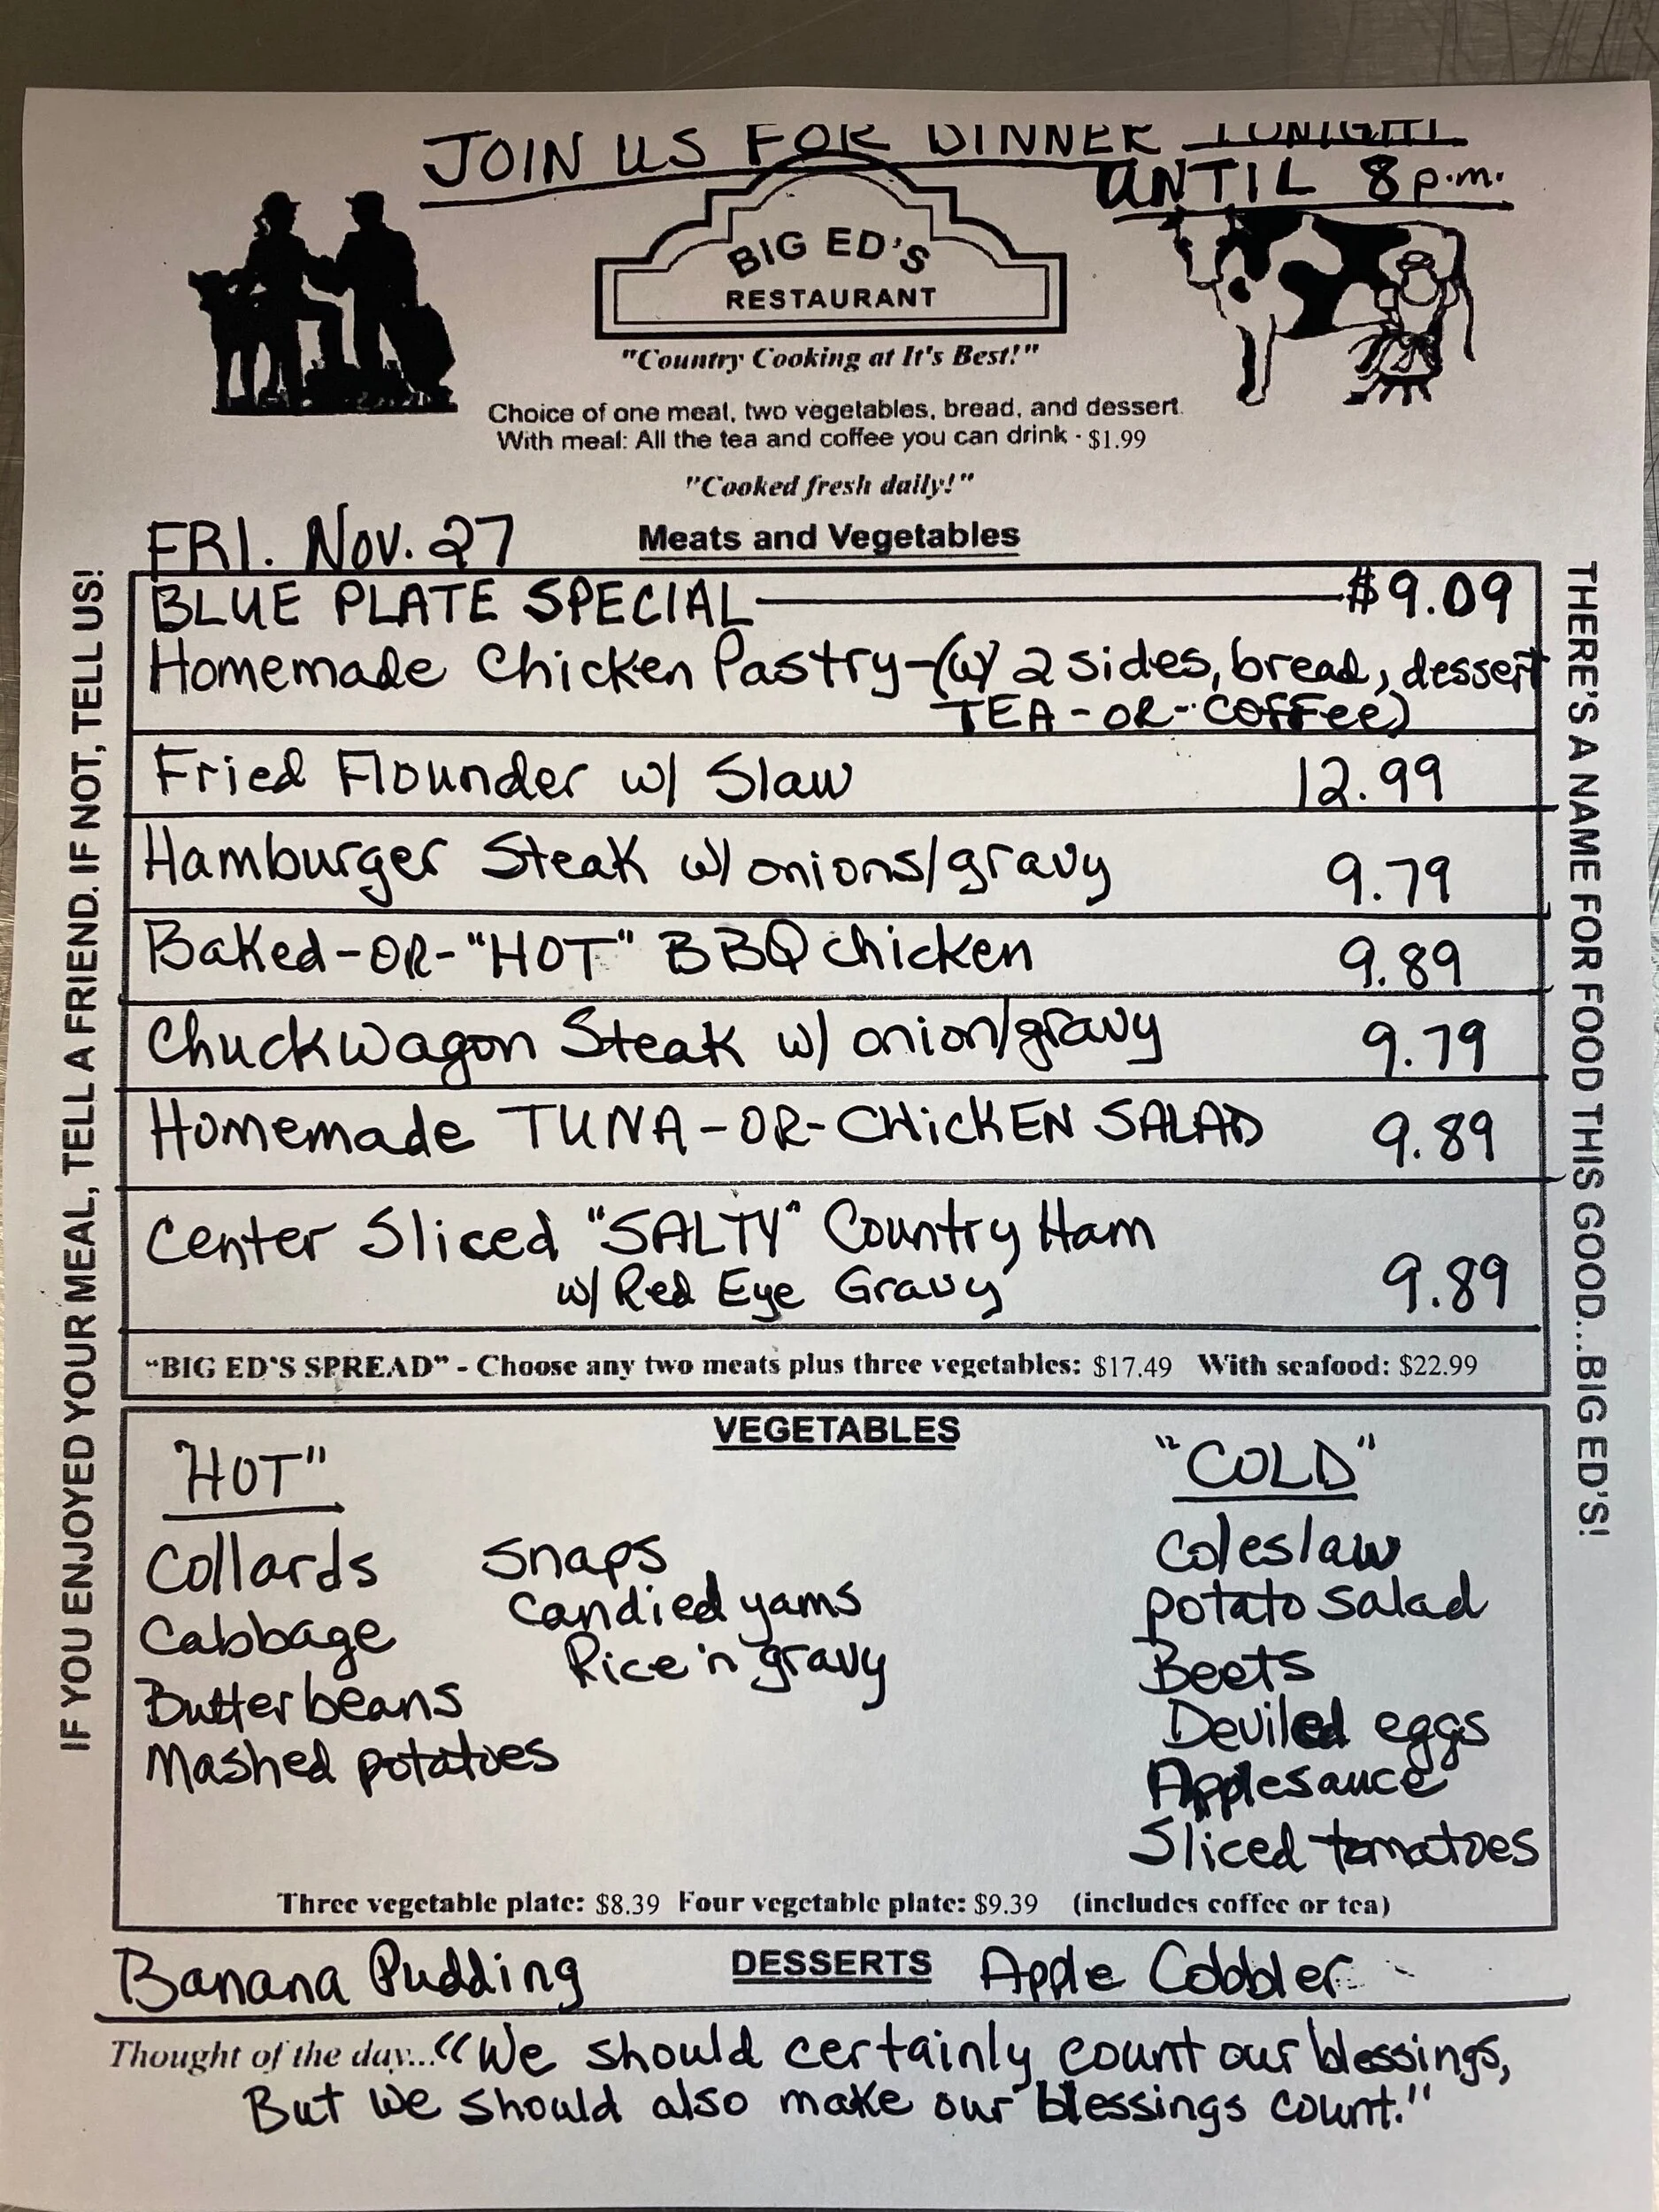 JOIN US FOR DINNER TONIGHT
UNTIL 8 p.m.
BIG ED'S
RESTAURANT
"Country Cooking at It's Best!"
Choice of one meal, two vegetables, bread, and dessert.
With meal: All the tea and coffee you can drink - $1.99
"Cooked fresh daily!"
FRI. Nov. 27
Meats and Vegetables
IF YOU ENJOYED YOUR MEAL, TELL A FRIEND. IF NOT, TELL US!
BLUE PLATE SPECIAL — $9.09
Homemade Chicken Pastry-(w/ 2 sides, bread, dessert
TEA-OR-COFFee)
Fried Flounder w/ Slaw 12.99
Hamburger Steak w/ onions/gravy 9.79
Baked-OR-"HOT" BBQ chicken 9.89
Chuckwagon Steak w/ onion/gravy 9.79
Homemade TUNA-OR-CHicKEN SALAD 9.89
Center Sliced "SALTY" Country Ham
w/ Red Eye Gravy 9.89
"BIG ED'S SPREAD" - Choose any two meats plus three vegetables: $17.49 With seafood: $22.99
THERE'S A NAME FOR FOOD THIS GOOD...BIG ED'S!
VEGETABLES
"HOT"
Collards
Cabbage
Butterbeans
Mashed potatoes
Snaps
Candied yams
Rice 'n gravy
"COLD"
Coleslaw
potato salad
Beets
Deviled eggs
Applesauce
Sliced tomatoes
Three vegetable plate: $8.39 Four vegetable plate: $9.39 (includes coffee or tea)
Banana Pudding DESSERTS Apple Cobbler
Thought of the day... "We should certainly count our blessings,
But we should also make our blessings count."